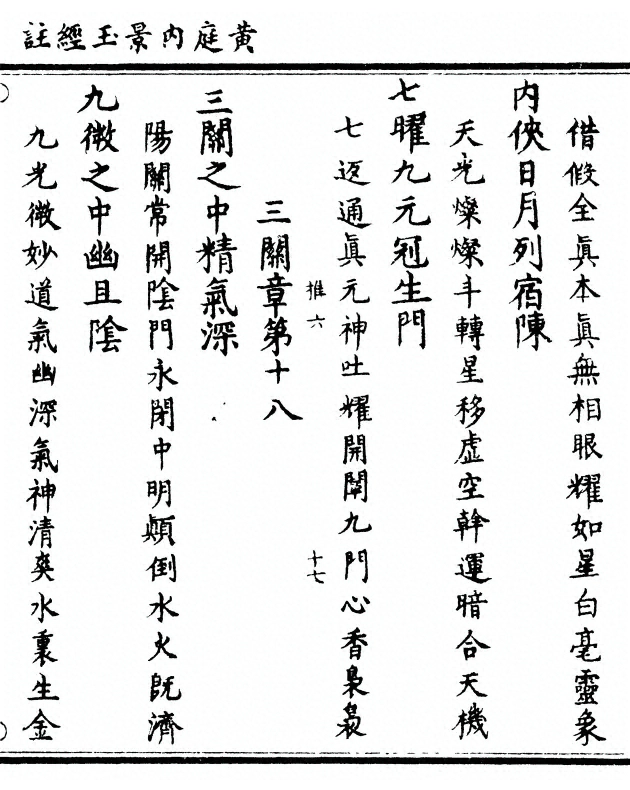 黃庭內景玉經註
借假全眞本眞無相眼耀如星白毫靈象
內俠日月列宿陳
天光燦燦斗轉星移虛空斡運暗合天機
七曜九元冠生門
七返通眞元神吐耀開闡九門心香裊裊
推六
十七
三關章第十八
三關之中精氣深
陽關常開陰門永閉中明顛倒水火旣濟
九微之中幽且陰
九光微妙道氣幽深氣神清爽水裏生金